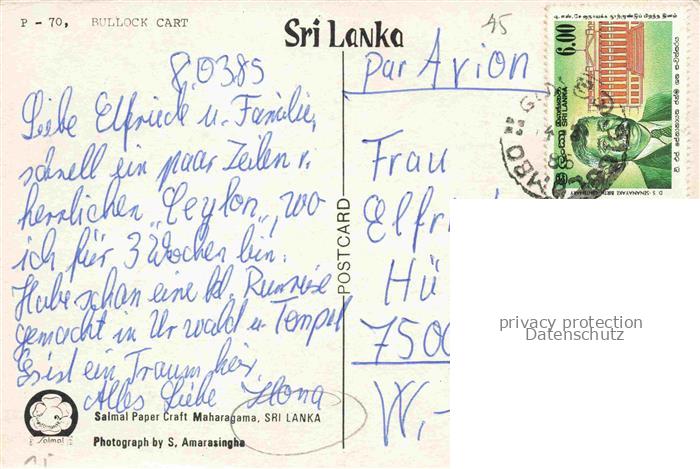 P - 70, BULLOCK CART
Sri Lanka
45
80385
Par Avion
Liebe Elfriede u. Familie,
schnell ein paar Zeilen v.
herrlichen "Ceylon", wo
ich für 3 Wochen bin.
Habe schon eine kl. Runreise
gemacht in Urwald u. Tempel
Es ist ein Traum hier.
Alles Liebe Ilona
POSTCARD
Frau
Elfri
Hü
7500
W.-
6.00
SRI LANKA
D. S. SENANAYAKE BIRTH CENTENARY
privacy protection
Datenschutz
Salmal
Salmal Paper Craft Maharagama, SRI LANKA
Photograph by S, Amarasingha